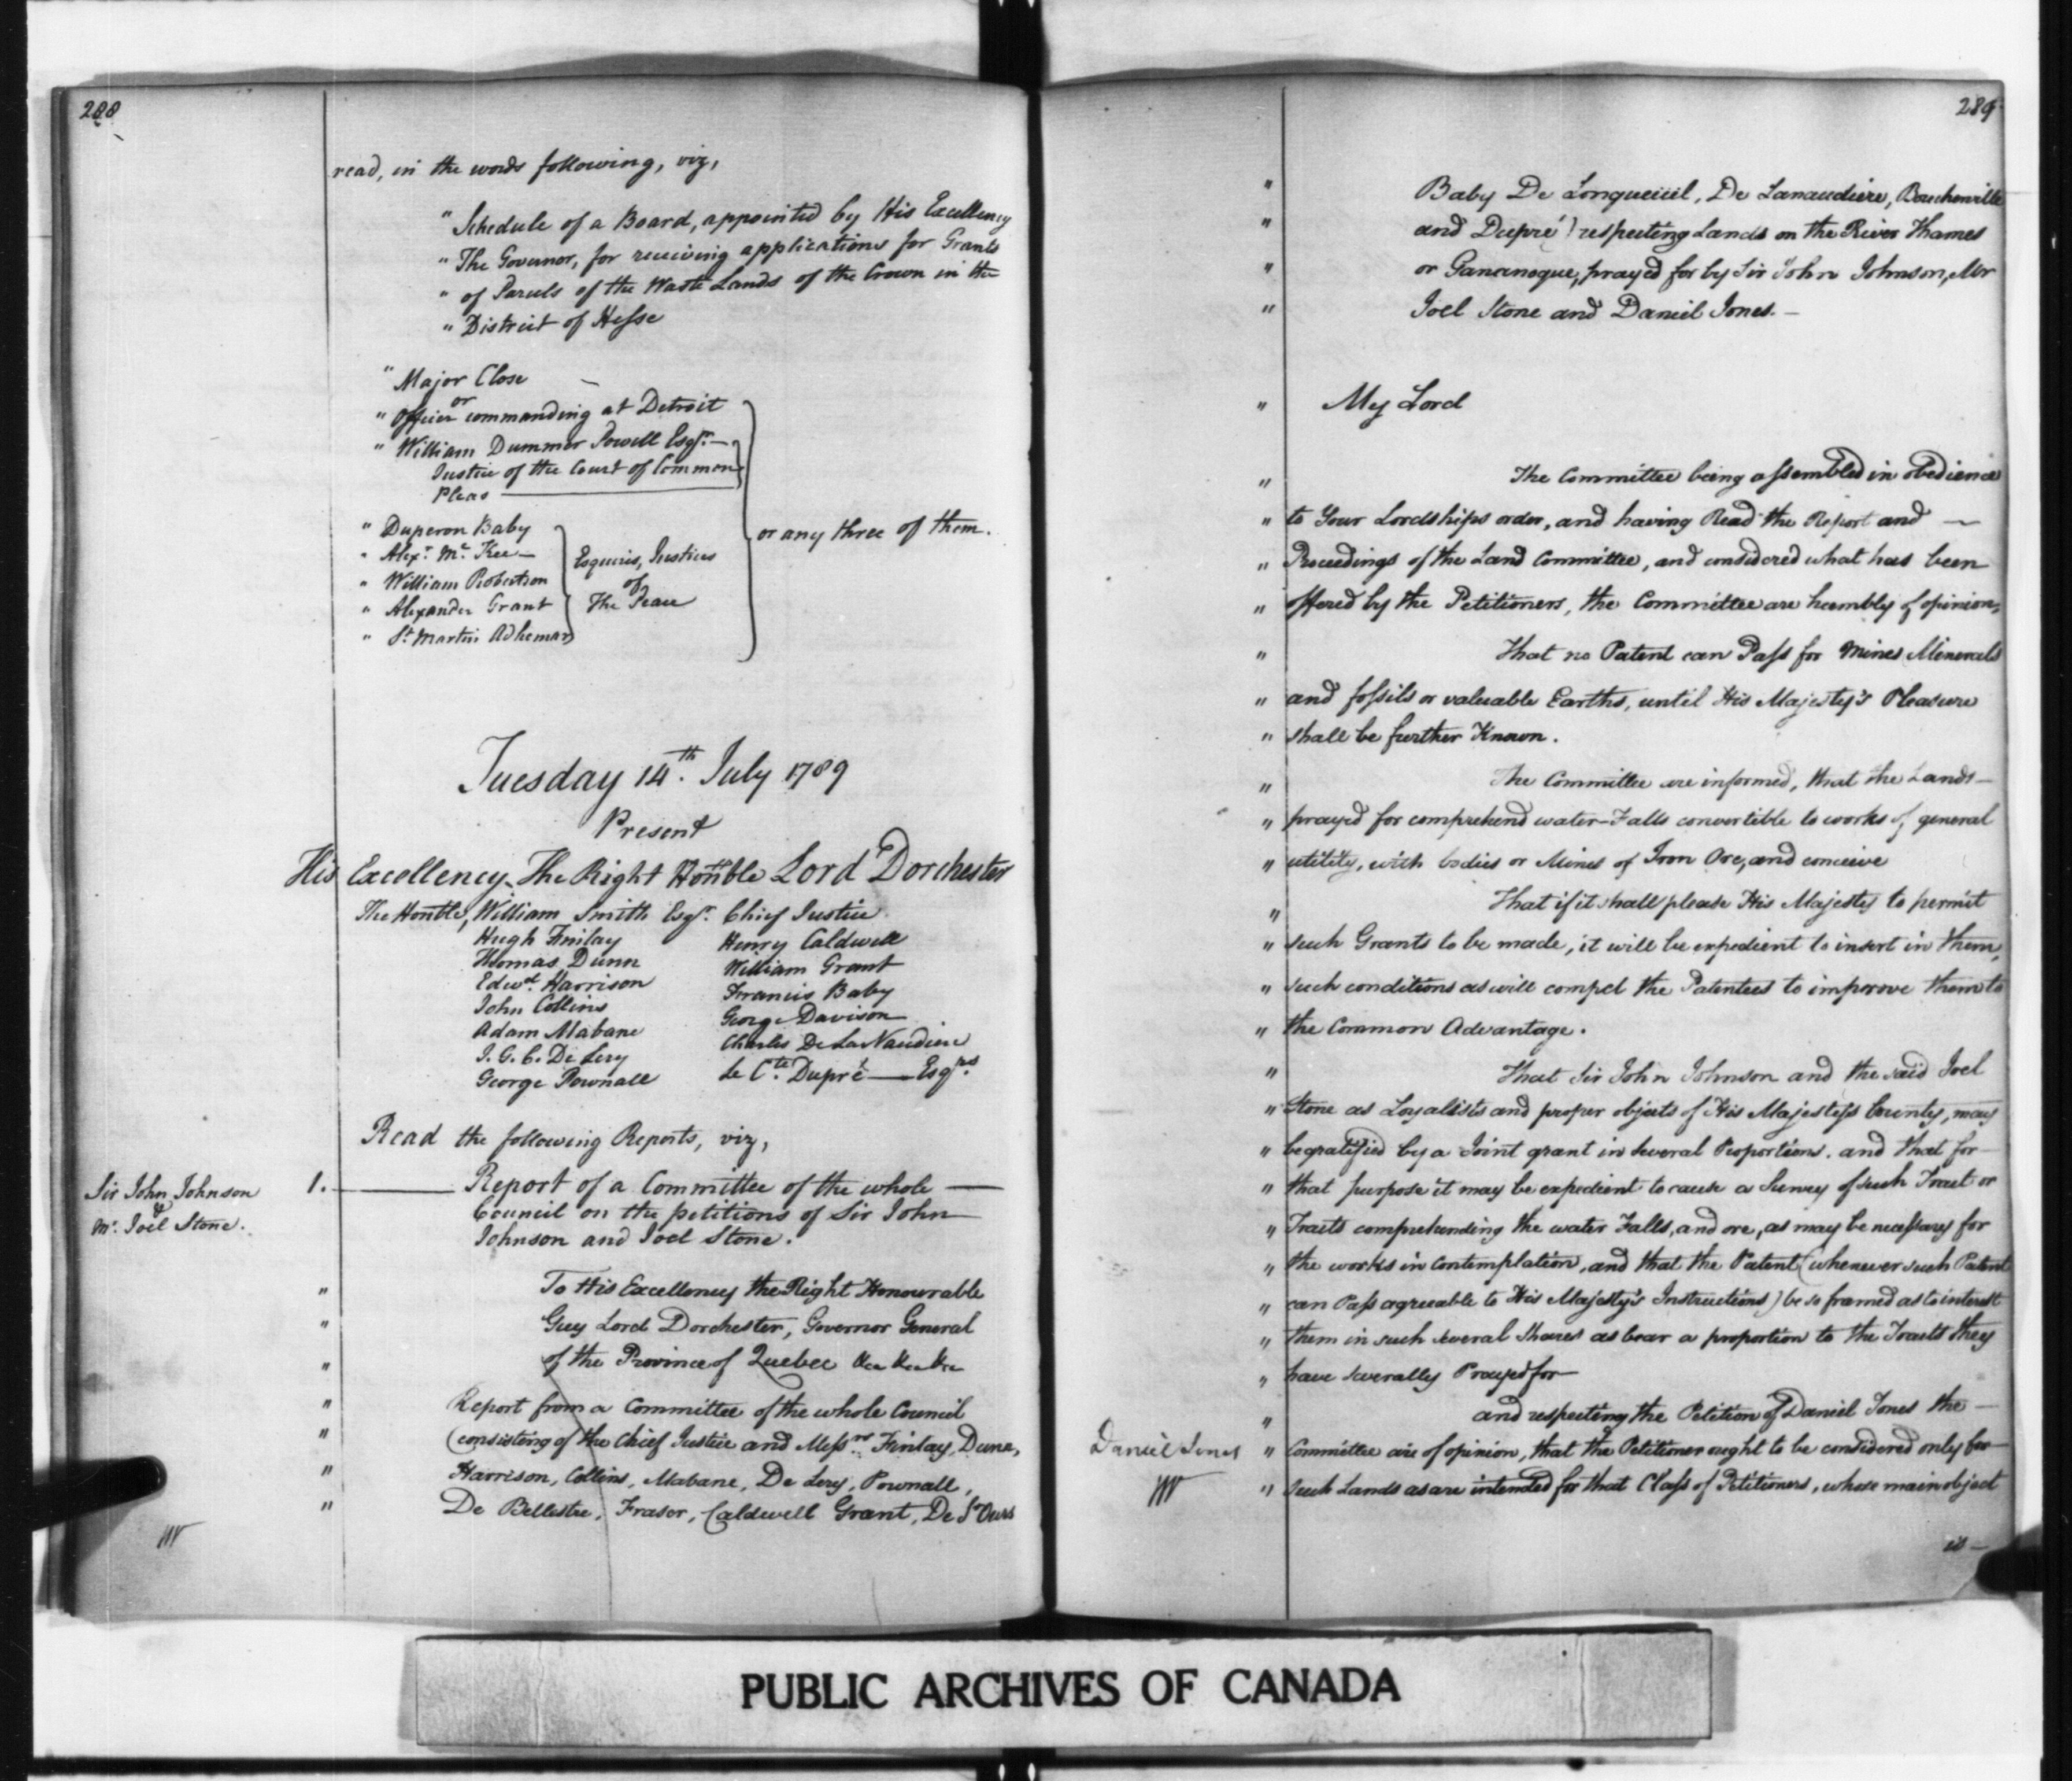 288
read, in the words following, viz,
" Schedule of a Board, appointed by His Excellency
" The Governor, for receiving applications for Grants
" of Parcels of the Waste Lands of the Crown in the
" District of Hesse
" Major Close
or
" Officer commanding at Detroit
" William Dummer Powell Esqr. —
Justice of the Court of Common
Pleas
" Duperon Baby
" Alexr. Mc. Kee —
" William Robertson
" Alexander Grant
" St. Martin Adhemar
Esquires, Justices
of
The Peace
or any three of them.
Tuesday 14th. July 1789
Present
His Excellency The Right Honble Lord Dorchester
The Honble, William Smith Esqr. Chief Justice
Hugh Finlay Henry Caldwell
Thomas Dunn William Grant
Edwd. Harrison Francis Baby
John Collins George Davison
Adam Mabane Charles De LaNaudiere
J. G. C. De Lery Le Cte. Dupré — Esqrs.
George Pownall
Read the following Reports, viz,
Sir John Johnson
&
Mr. Joel Stone.
1. — Report of a Committee of the whole —
Council on the petitions of Sir John
Johnson and Joel Stone.
" To His Excellency the Right Honourable
" Guy Lord Dorchester, Governor General
" of the Province of Quebec &ca &ca &ca
" Report from a Committee of the whole Council
" (consisting of the Chief Justice and Messrs. Finlay, Dunn,
" Harrison, Collins, Mabane, De Lery, Pownall,
" De Bellestre, Fraser, Caldwell Grant, De St Ours
289
" Baby De Longueuil, De Lanaudiere, Boucherville
" and Dupré) respecting Lands on the River Thames
" or Gananoque, prayed for by Sir John Johnson, Mr
" Joel Stone and Daniel Jones. —
" My Lord
" The Committee being assembled in obedience
" to Your Lordships order, and having Read the Report and —
" Proceedings of the Land Committee, and considered what has been
" offered by the Petitioners, the Committee are humbly of opinion,
" That no Patent can Pass for Mines Minerals
" and fossils or valuable Earths, until His Majesty's Pleasure
" shall be further Known.
" The Committee are informed, that the Lands —
" prayed for comprehend water-Falls convertible to works of general
" utility, with bodies or Mines of Iron Ore, and conceive
" That if it shall please His Majesty to permit
" such Grants to be made, it will be expedient to insert in them,
" such conditions as will compel the Patentees to improve them to
" the Common Advantage.
" That Sir John Johnson and the said Joel
" Stone as Loyalists and proper objects of His Majestys bounty, may
" be gratified by a Joint grant in several Proportions. and that for —
" that purpose it may be expedient to cause a Survey of such Tract or
" Tracts comprehending the water Falls, and ore, as may be necessary for
" the works in Contemplation, and that the Patent (whenever such Patent
" can Pass agreeable to His Majesty's Instructions) be so framed as to interest
" them in such several Shares as bear a proportion to the Tracts they
" have severally Prayed for —
" and respecting the Petition of Daniel Jones the —
Daniel Jones
" Committee are of opinion, that the Petitioner ought to be considered only for —
" such Lands as are intended for that Class of Petitioners, whose main object
is —
PUBLIC ARCHIVES OF CANADA